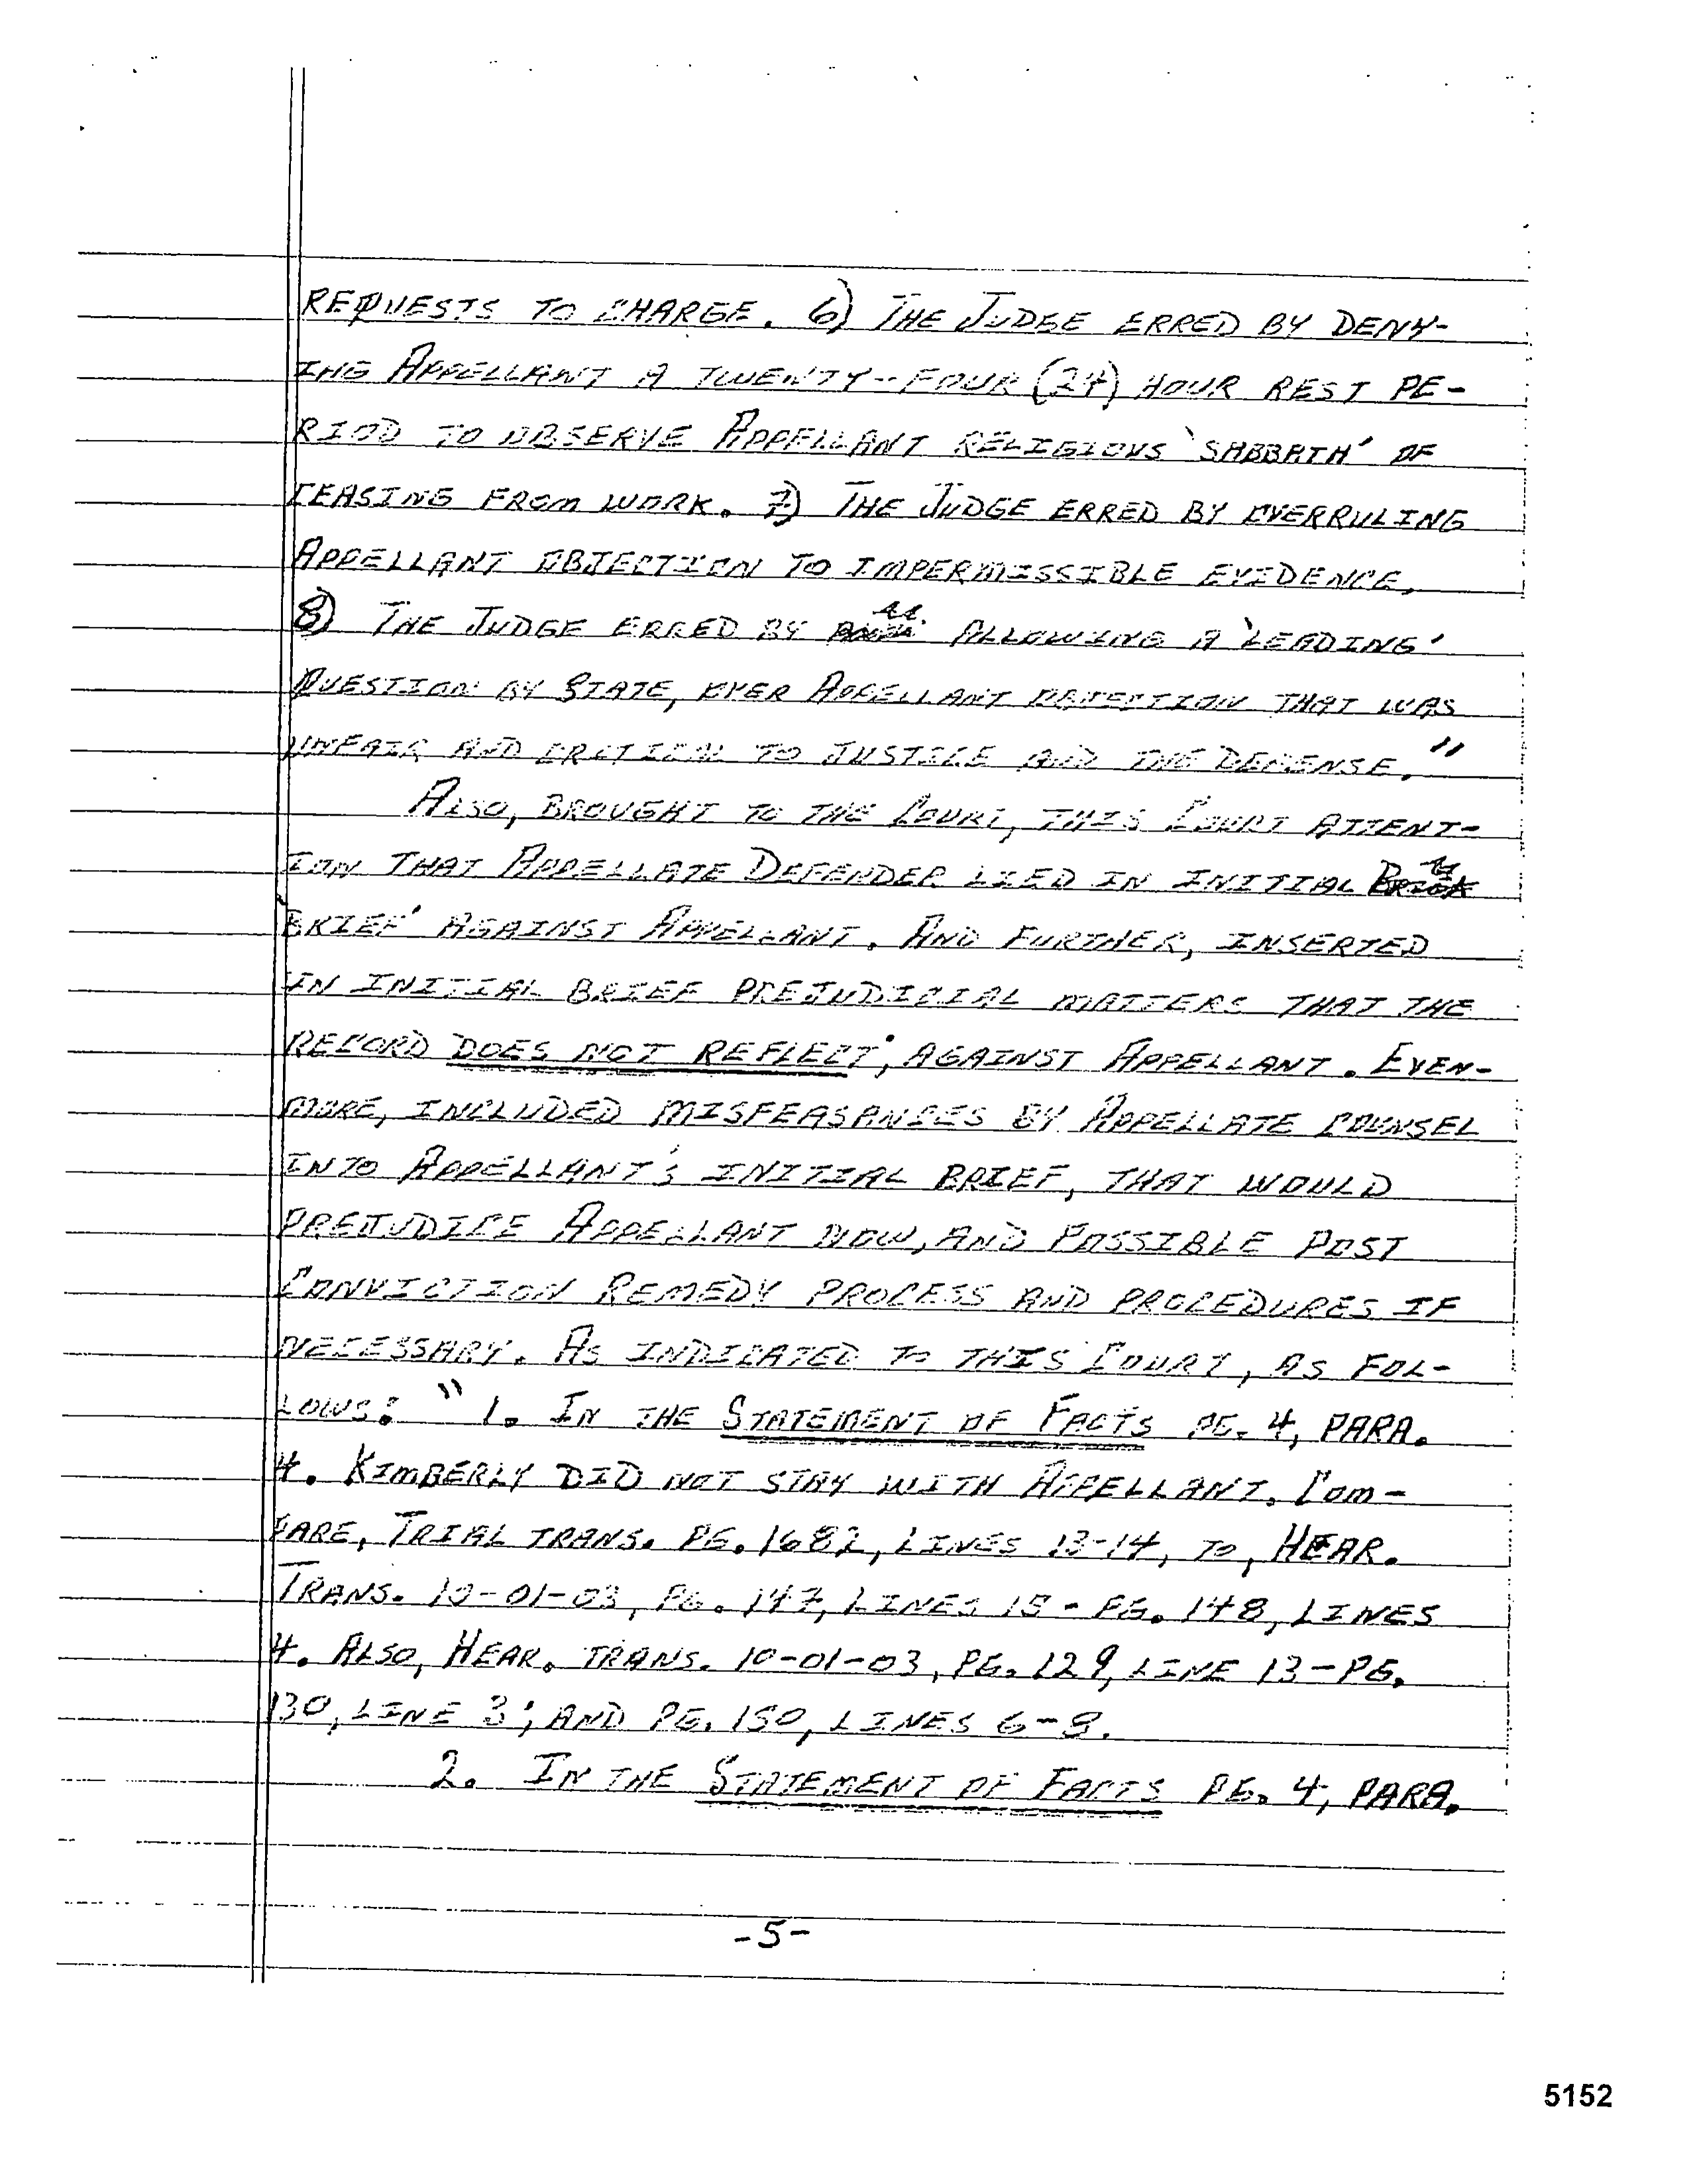 REQUESTS TO CHARGE. 6) THE JUDGE ERRED BY DENY-
ING APPELLANT A TWENTY-FOUR (24) HOUR REST PE-
RIOD TO OBSERVE APPELLANT RELIGIOUS 'SABBATH' OF
CEASING FROM WORK. 7) THE JUDGE ERRED BY OVERRULING
APPELLANT OBJECTION TO IMPERMISSIBLE EVIDENCE.
8) THE JUDGE ERRED BY ALLOWING A 'LEADING'
QUESTION BY STATE, OVER APPELLANT OBJECTION THAT WAS
UNFAIR AND CRITICAL TO JUSTICE AND THE DEFENSE."
ALSO, BROUGHT TO THE COURT, THIS COURT ATTENT-
ION THAT APPELLATE DEFENDER LIED IN INITIAL
BRIEF' AGAINST APPELLANT. AND FURTHER, INSERTED
IN INITIAL BRIEF PREJUDICIAL MATTERS THAT THE
RECORD DOES NOT REFLECT; AGAINST APPELLANT. EVEN-
MORE, INCLUDED MISFEASANCES BY APPELLATE COUNSEL
INTO APPELLANT'S INITIAL BRIEF, THAT WOULD
PREJUDICE APPELLANT NOW, AND POSSIBLE POST
CONVICTION REMEDY PROCESS AND PROCEDURES IF
NECESSARY. AS INDICATED TO THIS COURT, AS FOL-
LOWS: "1. IN THE STATEMENT OF FACTS PG. 4, PARA.
4. KIMBERLY DID NOT STAY WITH APPELLANT. COM-
PARE, TRIAL TRANS. PG. 1682, LINES 13-14, TO, HEAR.
TRANS. 10-01-03, PG. 147, LINES 15 - PG. 148, LINES
4. ALSO, HEAR. TRANS. 10-01-03, PG. 129, LINE 13 - PG.
130, LINE 3; AND PG. 150, LINES 6-8.
2. IN THE STATEMENT OF FACTS PG. 4, PARA.
-5-
5152